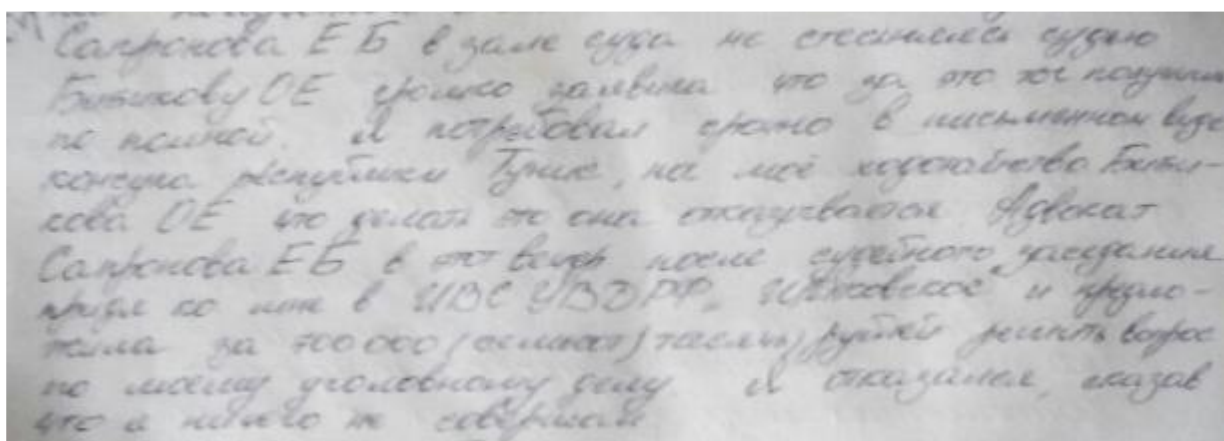 Сапронова Е Б в зале суда не стесняясь судью
ОЕ громко заявила что за это ты получишь
по полной. Я потребовал срочно в письменном виде
консула республики Тунис, на моё ходатайство Биты-
кова ОЕ что делать это она отказывается Адвокат
Сапронова Е Б в этот вечер после судебного заседания
ко мне в ИВС УВД РФ и предло-
жила за 700 000 (семьсот) тысяч рублей решить вопрос
по моему уголовному делу. Я отказался, сказав
что я ничего не совершал